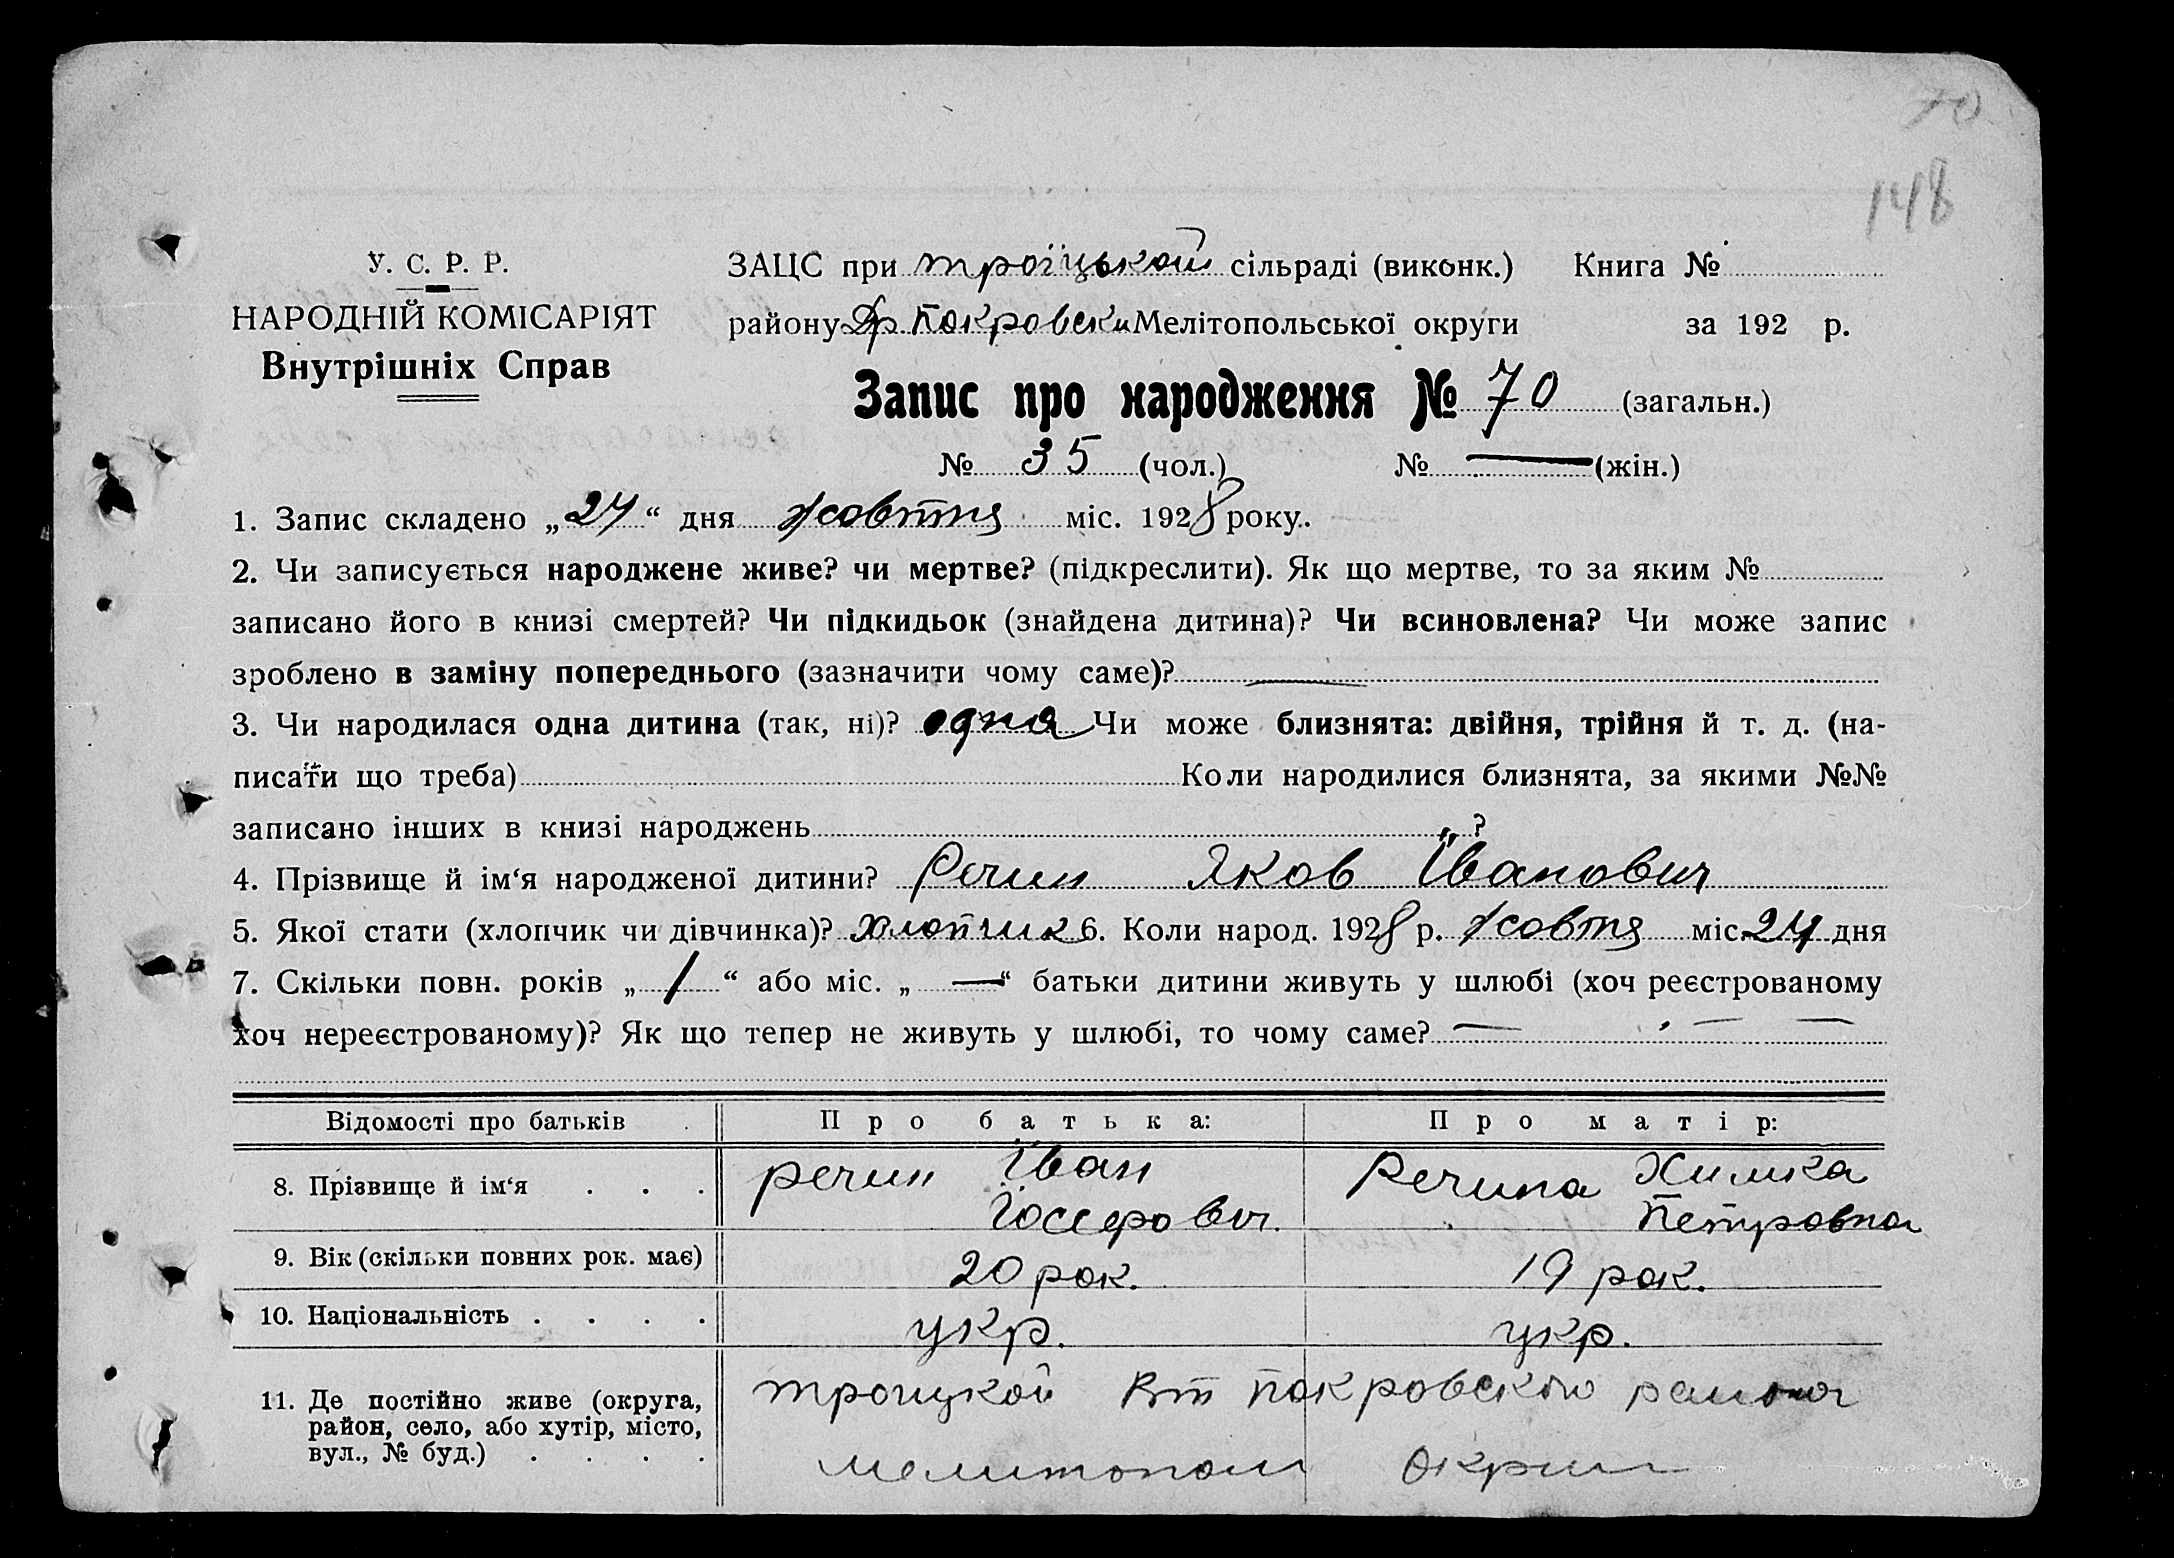 70
148
У. С. Р. Р.
НАРОДНІЙ КОМІСАРІЯТ
Внутрішніх Справ
ЗАЦС при троїцькой сільраді (виконк.) Книга №
району Др покровськ Мелітопольської округи за 192 р.
Запис про народження № 70 (загальн.)
№ 35 (чол.) № — (жін.)
1. Запис складено „24“ дня жовтня міс. 1928 року.
2. Чи записується народжене живе? чи мертве? (підкреслити). Як що мертве, то за яким №
записано його в книзі смертей? Чи підкидьок (знайдена дитина)? Чи всиновлена? Чи може запис
зроблено в заміну попереднього (зазначити чому саме)? —
3. Чи народилася одна дитина (так, ні)? одна Чи може близнята: двійня, трійня й т. д. (на-
писати що треба) Коли народилися близнята, за якими №№
записано інших в книзі народжень ?
4. Прізвище й ім‘я народженої дитини? Речин Яков Іванович
5. Якої стати (хлопчик чи дівчинка)? хлопчик 6. Коли народ. 1928 р. жовтня міс. 24 дня
7. Скільки повн. років „ 1 “ або міс. „ — “ батьки дитини живуть у шлюбі (хоч реєстрованому
хоч нереєстрованому)? Як що тепер не живуть у шлюбі, то чому саме? — — —
Відомості про батьків Про батька: Про матір:
8. Прізвище й ім‘я . . . Речин Іван Речина Химка
Йосефович Петровна
9. Вік (скільки повних рок. має) 20 рок. 19 рок.
10. Національність . . . . укр. укр.
11. Де постійно живе (округа, троицкой покровського района
район, село, або хутір, місто,
вул., № буд.) . . . . мелитопол